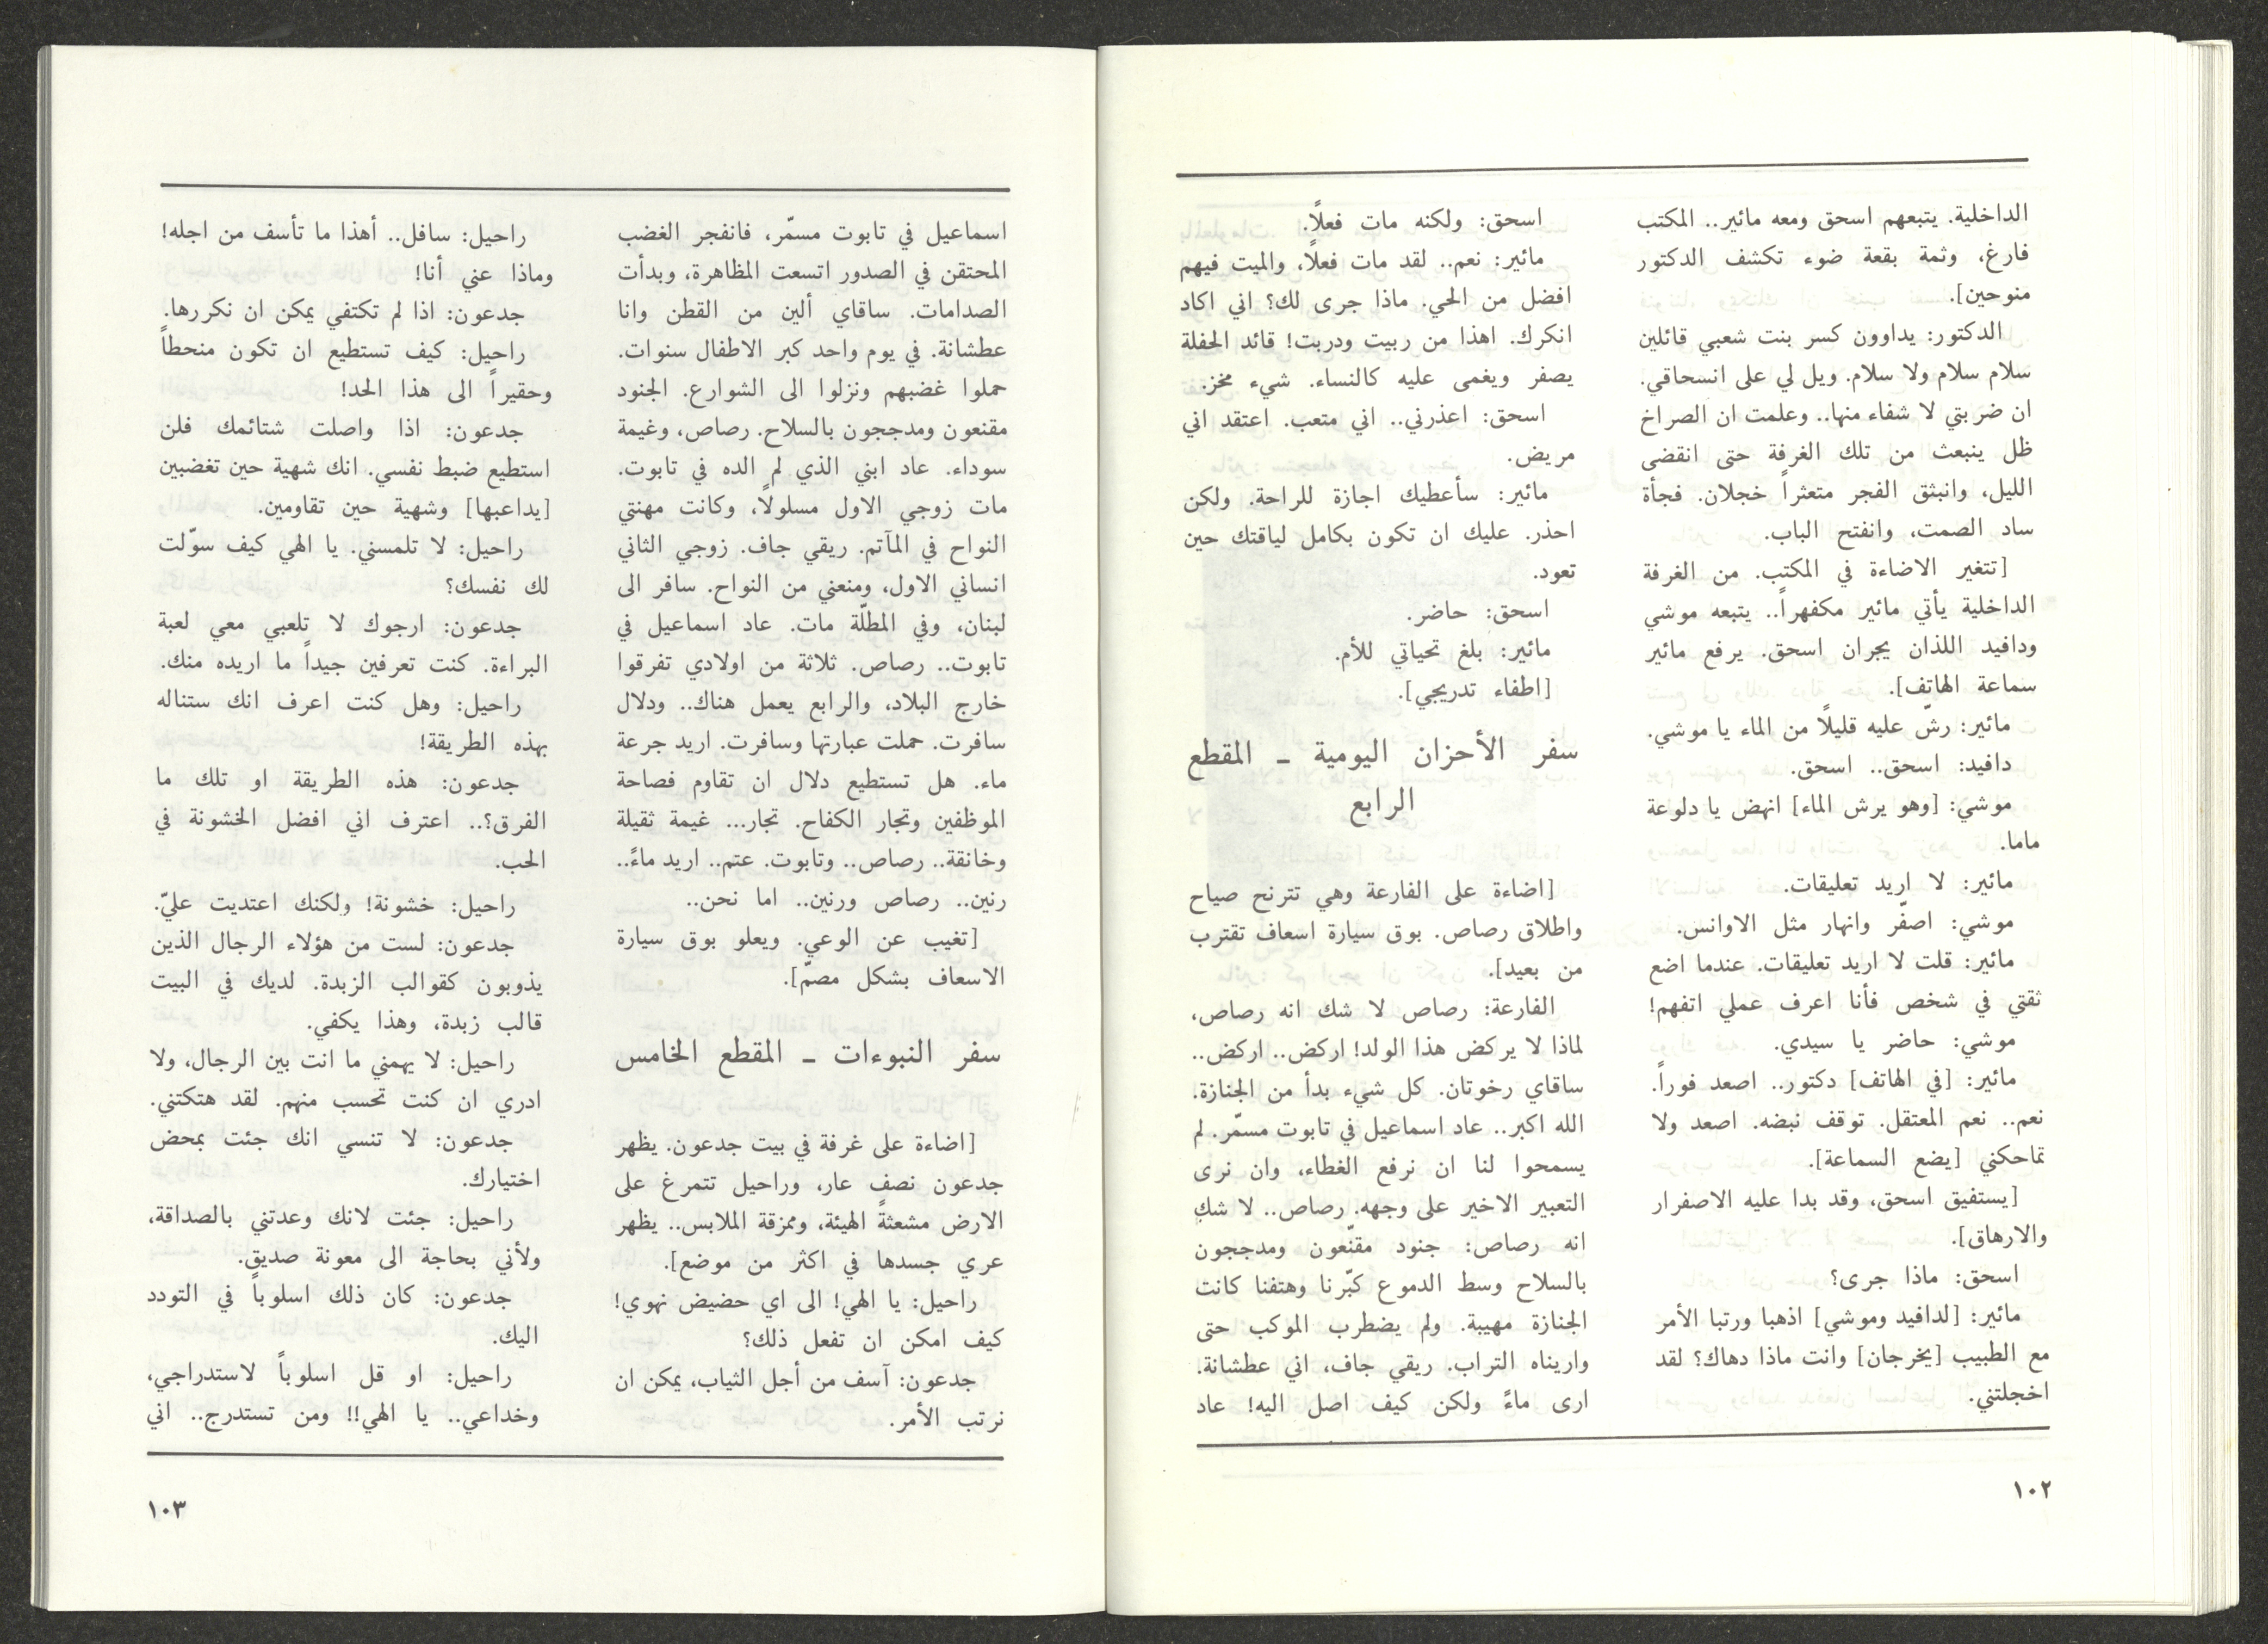 الداخلية. يتبعهم اسحق ومعه مائير.. المكتب
فارغ، وثمة بقعة ضوء تكشف الدكتور
منوحين].
الدكتور: يداوون كسر بنت شعبي قائلين
سلام سلام ولا سلام. ويل لي على انسحاقي.
ان ضربتي لا شفاء منها.. وعلمت ان الصراخ
ظل ينبعث من تلك الغرفة حتى انقضى
الليل، وانبثق الفجر متعثراً خجلان. فجأة
ساد الصمت، وانفتح الباب.
[تتغير الاضاءة في المكتب. من الغرفة
الداخلية يأتي مائير مكفهراً.. يتبعه موشي
ودافيد اللذان يجران اسحق. يرفع مائير
سماعة الهاتف].
مائير: رشّ عليه قليلاً من الماء يا موشي.
دافيد: اسحق.. اسحق.
موشي: [وهو يرش الماء] انهض يا دلوعة
ماما.
مائير: لا اريد تعليقات.
موشي: اصفّر وانهار مثل الاوانس.
مائير: قلت لا اريد تعليقات. عندما اضع
ثقتي في شخص فأنا اعرف عملي اتفهم!
موشي: حاضر يا سيدي.
مائير: [في الهاتف] دكتور.. اصعد فوراً.
نعم.. نعم المعتقل. توقف نبضه. اصعد ولا
تماحكني [يضع السماعة].
[يستفيق اسحق، وقد بدا عليه الاصفرار
والارهاق].
اسحق: ماذا جرى؟
مائير: [لدافيد وموشي] اذهبا ورتبا الأمر
مع الطبيب [يخرجان] وانت ماذا دهاك؟ لقد
اخجلتني.
اسحق: ولكنه مات فعلاً.
مائير: نعم.. لقد مات فعلاً، والميت فيهم
افضل من الحي. ماذا جرى لك؟ اني اكاد
انكرك. اهذا من ربيت ودربت! قائد الحفلة
يصفر ويغمى عليه كالنساء. شيء مخز.
اسحق: اعذرني.. اني متعب. اعتقد اني
مريض.
مائير: سأعطيك اجازة للراحة. ولكن
احذر. عليك ان تكون بكامل لياقتك حين
تعود.
اسحق: حاضر.
مائير: بلغ تحياتي للأم.
[اطفاء تدريجي].
سفر الأحزان اليومية – المقطع
الرابع
[اضاءة على الفارعة وهي تترنح صياح
واطلاق رصاص. بوق سيارة اسعاف تقترب
من بعيد].
الفارعة: رصاص لا شك انه رصاص،
لماذا لا يركض هذا الولد! اركض.. اركض..
ساقاي رخوتان. كل شيء بدأ من الجنازة.
الله اكبر.. عاد اسماعيل في تابوت مسمّر. لم
يسمحوا لنا ان نرفع الغطاء، وان نرى
التعبير الاخير على وجهه. رصاص.. لا شك
انه رصاص: جنود مقنّعون ومدججون
بالسلاح وسط الدموع كبّرنا وهتفنا كانت
الجنازة مهيبة. ولم يضطرب الموكب حتى
واريناه التراب. ريقي جاف، اني عطشانة.
ارى ماءً ولكن كيف اصل اليه! عاد
١٠٢
اسماعيل في تابوت مسمّر، فانفجر الغضب
المحتقن في الصدور اتسعت المظاهرة، وبدأت
الصدامات. ساقاي ألين من القطن وانا
عطشانة. في يوم واحد كبر الاطفال سنوات.
حملوا غضبهم ونزلوا الى الشوارع. الجنود
مقنعون ومدججون بالسلاح. رصاص، وغيمة
سوداء. عاد ابني الذي لم الده في تابوت.
مات زوجي الاول مسلولاً، وكانت مهنتي
النواح في المآتم. ريقي جاف. زوجي الثاني
انساني الاول، ومنعني من النواح. سافر الى
لبنان، وفي المطلّة مات. عاد اسماعيل في
تابوت.. رصاص. ثلاثة من اولادي تفرقوا
خارج البلاد، والرابع يعمل هناك.. ودلال
سافرت. حملت عبارتها وسافرت. اريد جرعة
ماء. هل تستطيع دلال ان تقاوم فصاحة
الموظفين وتجار الكفاح. تجار... غيمة ثقيلة
وخانقة.. رصاص.. وتابوت. عتم.. اريد ماءً..
رنين.. رصاص ورنين.. اما نحن..
[تغيب عن الوعي. ويعلو بوق سيارة
الاسعاف بشكل مصمّ].
سفر النبوءات – المقطع الخامس
[اضاءة على غرفة في بيت جدعون. يظهر
جدعون نصف عار، وراحيل تتمرغ على
الارض مشعثةً الهيئة، وممزقة الملابس.. يظهر
عري جسدها في اكثر من موضع].
راحيل: يا الهي! الى اي حضيض نهوي!
كيف امكن ان تفعل ذلك؟
جدعون: آسف من أجل الثياب، يمكن ان
نرتب الأمر.
راحيل: سافل.. أهذا ما تأسف من اجله!
وماذا عني أنا!
جدعون: اذا لم تكتفي يمكن ان نكررها.
راحيل: كيف تستطيع ان تكون منحطاً
وحقيراً الى هذا الحد!
جدعون: اذا واصلت شتائمك فلن
استطيع ضبط نفسي. انك شهية حين تغضبين
[يداعبها] وشهية حين تقاومين.
راحيل: لا تلمسني. يا الهي كيف سوّلت
لك نفسك؟
جدعون: ارجوك لا تلعبي معي لعبة
البراءة. كنت تعرفين جيداً ما اريده منك.
راحيل: وهل كنت اعرف انك ستناله
بهذه الطريقة!
جدعون: هذه الطريقة او تلك ما
الفرق؟.. اعترف اني افضل الخشونة في
الحب.
راحيل: خشونة! ولكنك اعتديت عليّ.
جدعون: لست من هؤلاء الرجال الذين
يذوبون كقوالب الزبدة. لديك في البيت
قالب زبدة، وهذا يكفي.
راحيل: لا يهمني ما انت بين الرجال، ولا
ادري ان كنت تحسب منهم. لقد هتكتني.
جدعون: لا تنسي انك جئت بمحض
اختيارك.
راحيل: جئت لانك وعدتني بالصداقة،
ولأني بحاجة الى معونة صديق.
جدعون: كان ذلك اسلوباً في التودد
اليك.
راحيل: او قل اسلوباً لاستدراجي،
وخداعي.. يا الهي!! ومن تستدرج.. اني
١٠٣